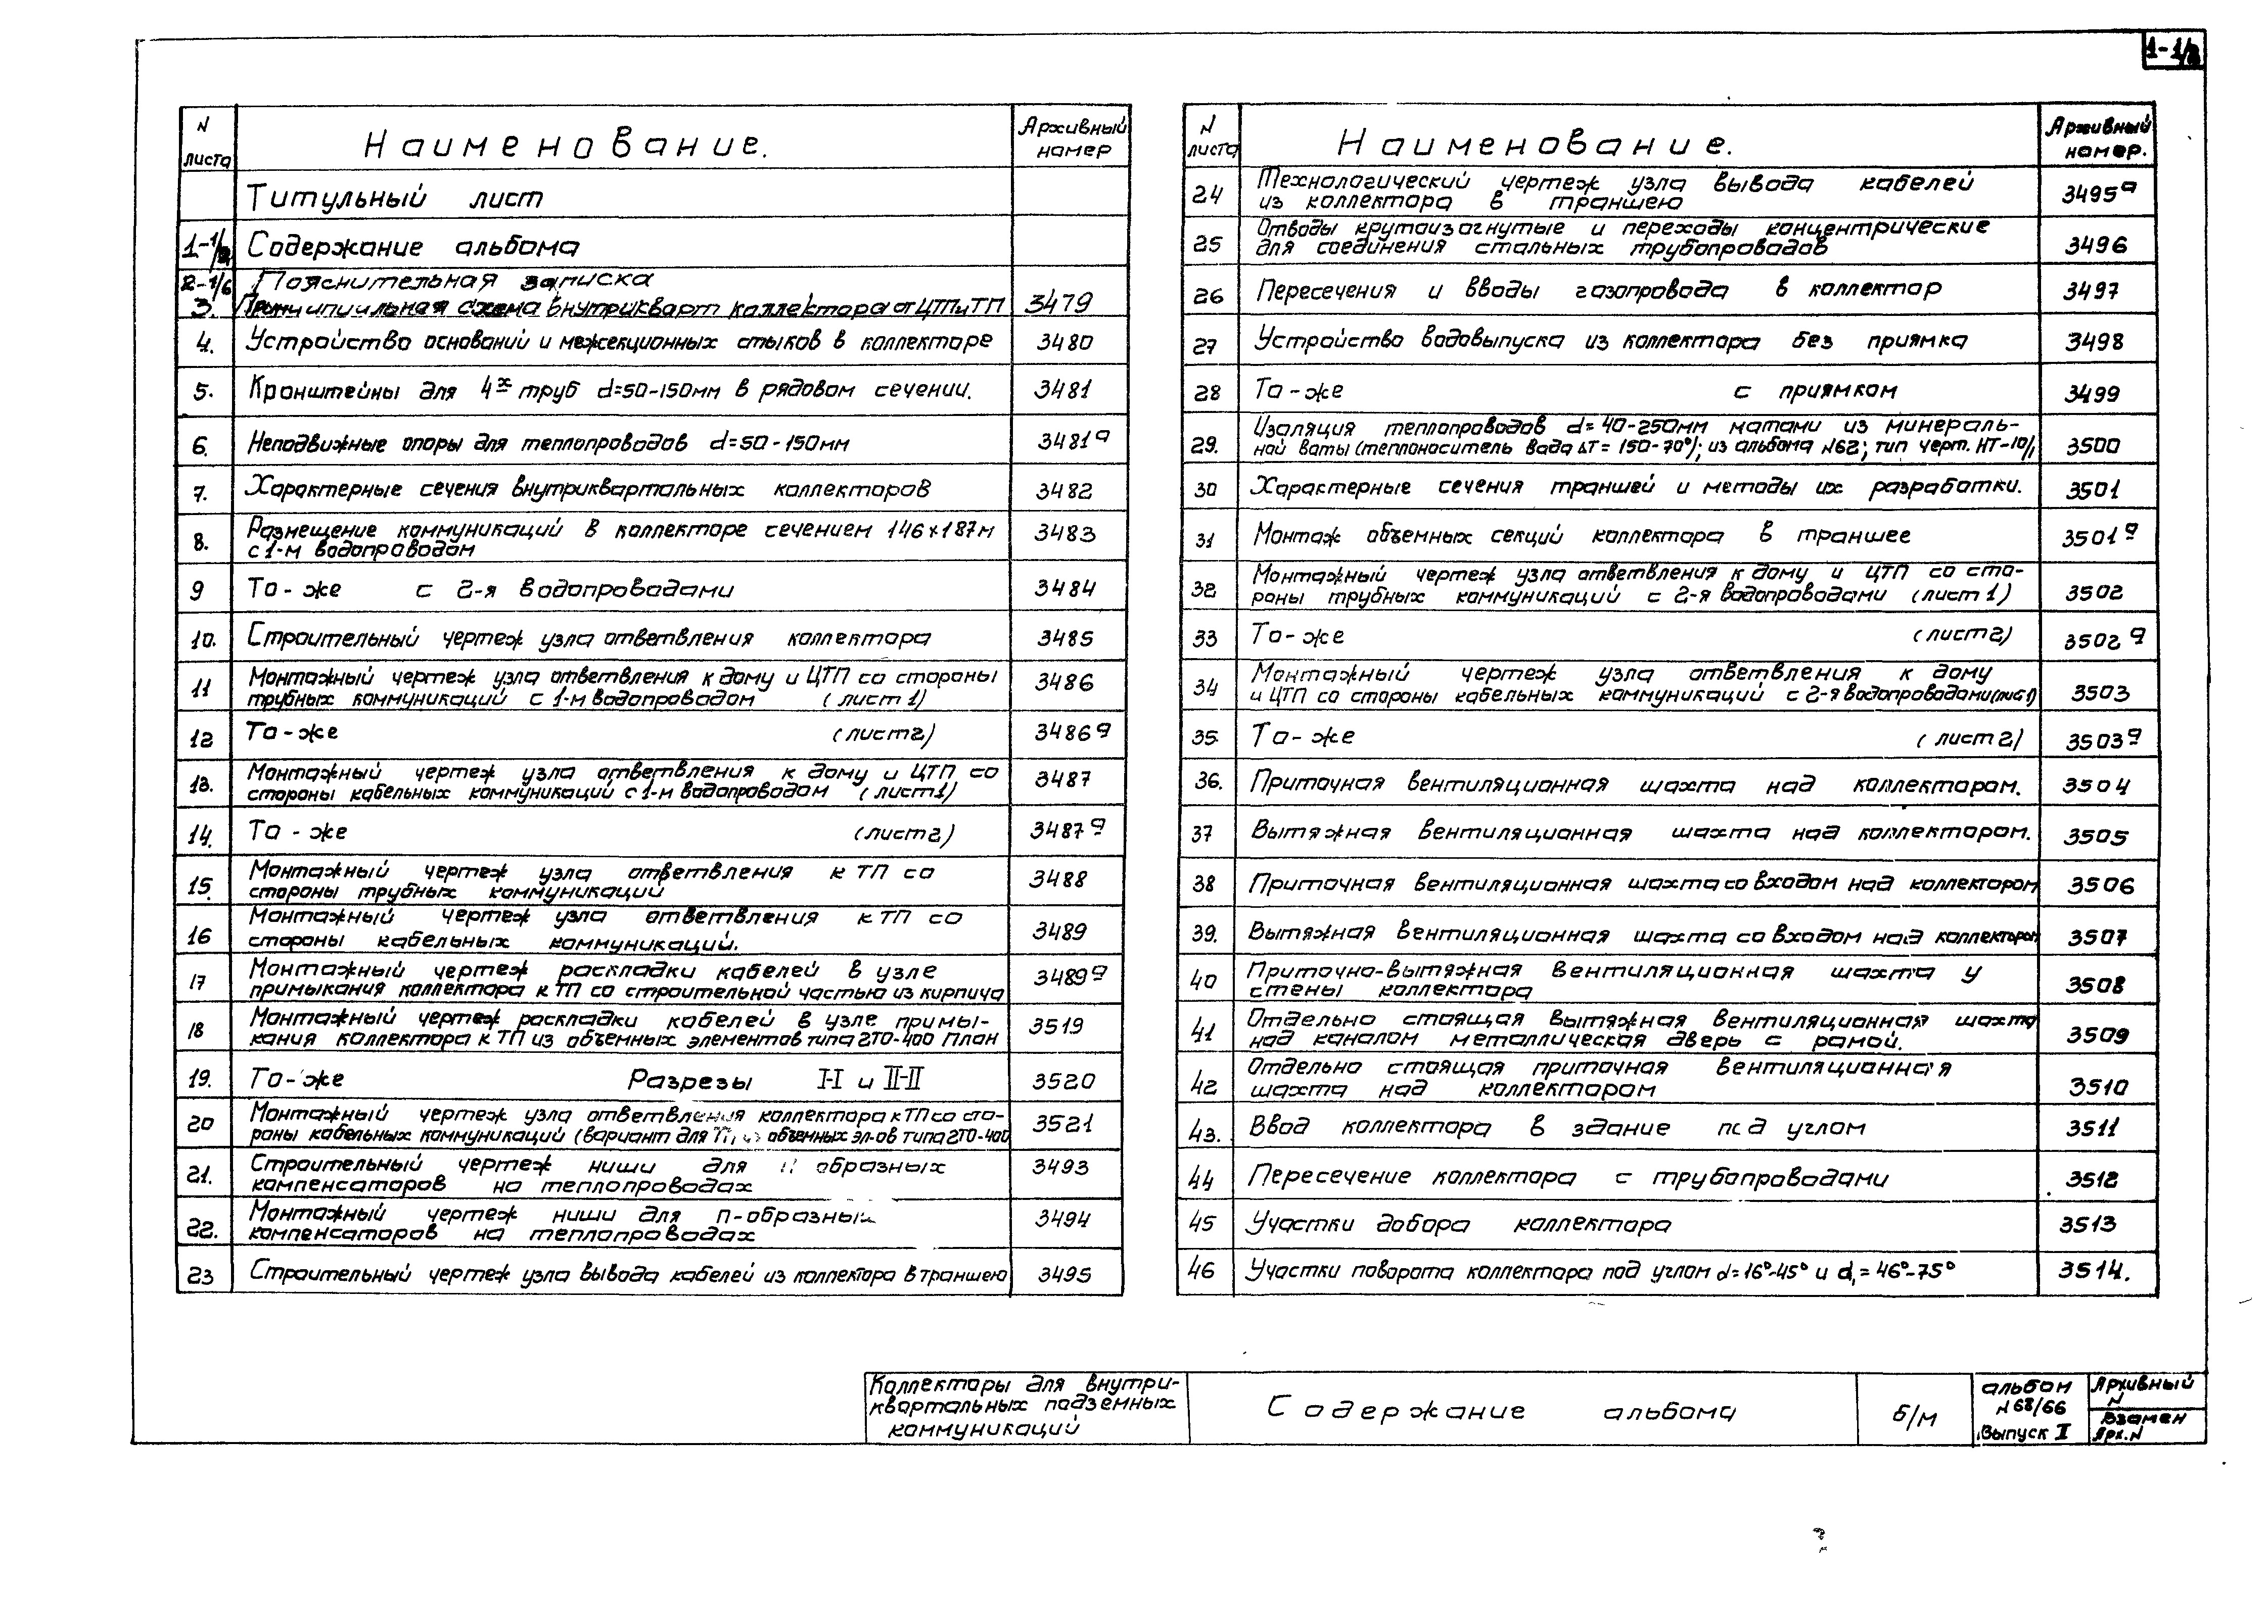 1-1/2
N листа Наименование. Архивный номер
Титульный лист
1-1/2 Содержание альбома
2-1/6 Пояснительная записка
3. Принципиальная схема внутрикварт коллектора от ЦТП и ТП 3479
4. Устройство оснований и межсекционных стыков в коллекторе 3480
5. Кронштейны для 4х труб d=50-150мм в рядовом сечении. 3481
6. Неподвижные опоры для теплопроводов d=50-150мм 3481а
7. Характерные сечения внутриквартальных коллекторов 3482
8. Размещение коммуникаций в коллекторе сечением 146×187м 3483
с 1-м водопроводом
9 То-же с 2-я водопроводами 3484
10. Строительный чертеж узла ответвления коллектора 3485
11 Монтажный чертеж узла ответвления к дому и ЦТП со стороны 3486
трубных коммуникаций с 1-м водопроводом (лист 1)
12 То-же (лист 2) 3486а
13. Монтажный чертеж узла ответвления к дому и ЦТП со 3487
стороны кабельных коммуникаций с 1-м водопроводом (лист 1)
14. То-же (лист 2) 3487а
15. Монтажный чертеж узла ответвления к ТП со 3488
стороны трубных коммуникаций
16 Монтажный чертеж узла ответвления к ТП со 3489
стороны кабельных коммуникаций.
17 Монтажный чертеж раскладки кабелей в узле 3489а
примыкания коллектора к ТП со строительной частью из кирпича
18 Монтажный чертеж раскладки кабелей в узле примы- 3519
кания коллектора к ТП из объемных элементов типа 2ТО-400 План
19. То-же Разрезы I-I и II-II 3520
20 Монтажный чертеж узла ответвления коллектора к ТП со сто- 3521
роны кабельных коммуникаций (вариант для ТП из объемных эл-ов типа 2ТО-400
21. Строительный чертеж ниши для П образных 3493
компенсаторов на теплопроводах
22. Монтажный чертеж ниши для п-образных 3494
компенсаторов на теплопроводах
23 Строительный чертеж узла вывода кабелей из коллектора в траншею 3495
N листа Наименование. Архивный номер.
24 Технологический чертеж узла вывода кабелей 3495а
из коллектора в траншею
25 Отводы крутоизогнутые и переходы концентрические 3496
для соединения стальных трубопроводов
26 Пересечения и вводы газопровода в коллектор 3497
27 Устройство водовыпуска из коллектора без приямка 3498
28 То-же с приямком 3499
29. Изоляция теплопроводов d=40-250мм матами из минераль- 3500
ной ваты (теплоноситель вода ΔT=150-70°); из альбома N62; тип черт. НТ-10/1
30 Характерные сечения траншей и методы их разработки. 3501
31 Монтаж объемных секций коллектора в траншее 3501а
32 Монтажный чертеж узла ответвления к дому и ЦТП со сто- 3502
роны трубных коммуникаций с 2-я водопроводами (лист 1)
33 То-же (лист 2) 3502а
34 Монтажный чертеж узла ответвления к дому 3503
и ЦТП со стороны кабельных коммуникаций с 2-я водопроводами (лист 1)
35 То-же (лист 2) 3503а
36. Приточная вентиляционная шахта над коллектором. 3504
37 Вытяжная вентиляционная шахта над коллектором. 3505
38 Приточная вентиляционная шахта со входом над коллектором 3506
39. Вытяжная вентиляционная шахта со входом над коллектором 3507
40 Приточно-вытяжная вентиляционная шахта у 3508
стены коллектора
41 Отдельно стоящая вытяжная вентиляционная шахта 3509
над каналом металлическая дверь с рамой.
42 Отдельно стоящая приточная вентиляционная 3510
шахта над коллектором
43. Ввод коллектора в здание под углом 3511
44 Пересечение коллектора с трубопроводами 3512
45 Участки добора коллектора 3513
46 Участки поворота коллектора под углом d=16°-45° и d1=46°-75° 3514.
Коллекторы для внутри-
квартальных подземных
коммуникаций
Содержание альбома
б/м
альбом
N 68/66
Выпуск II
Архивный
N
Взамен
Арх.N